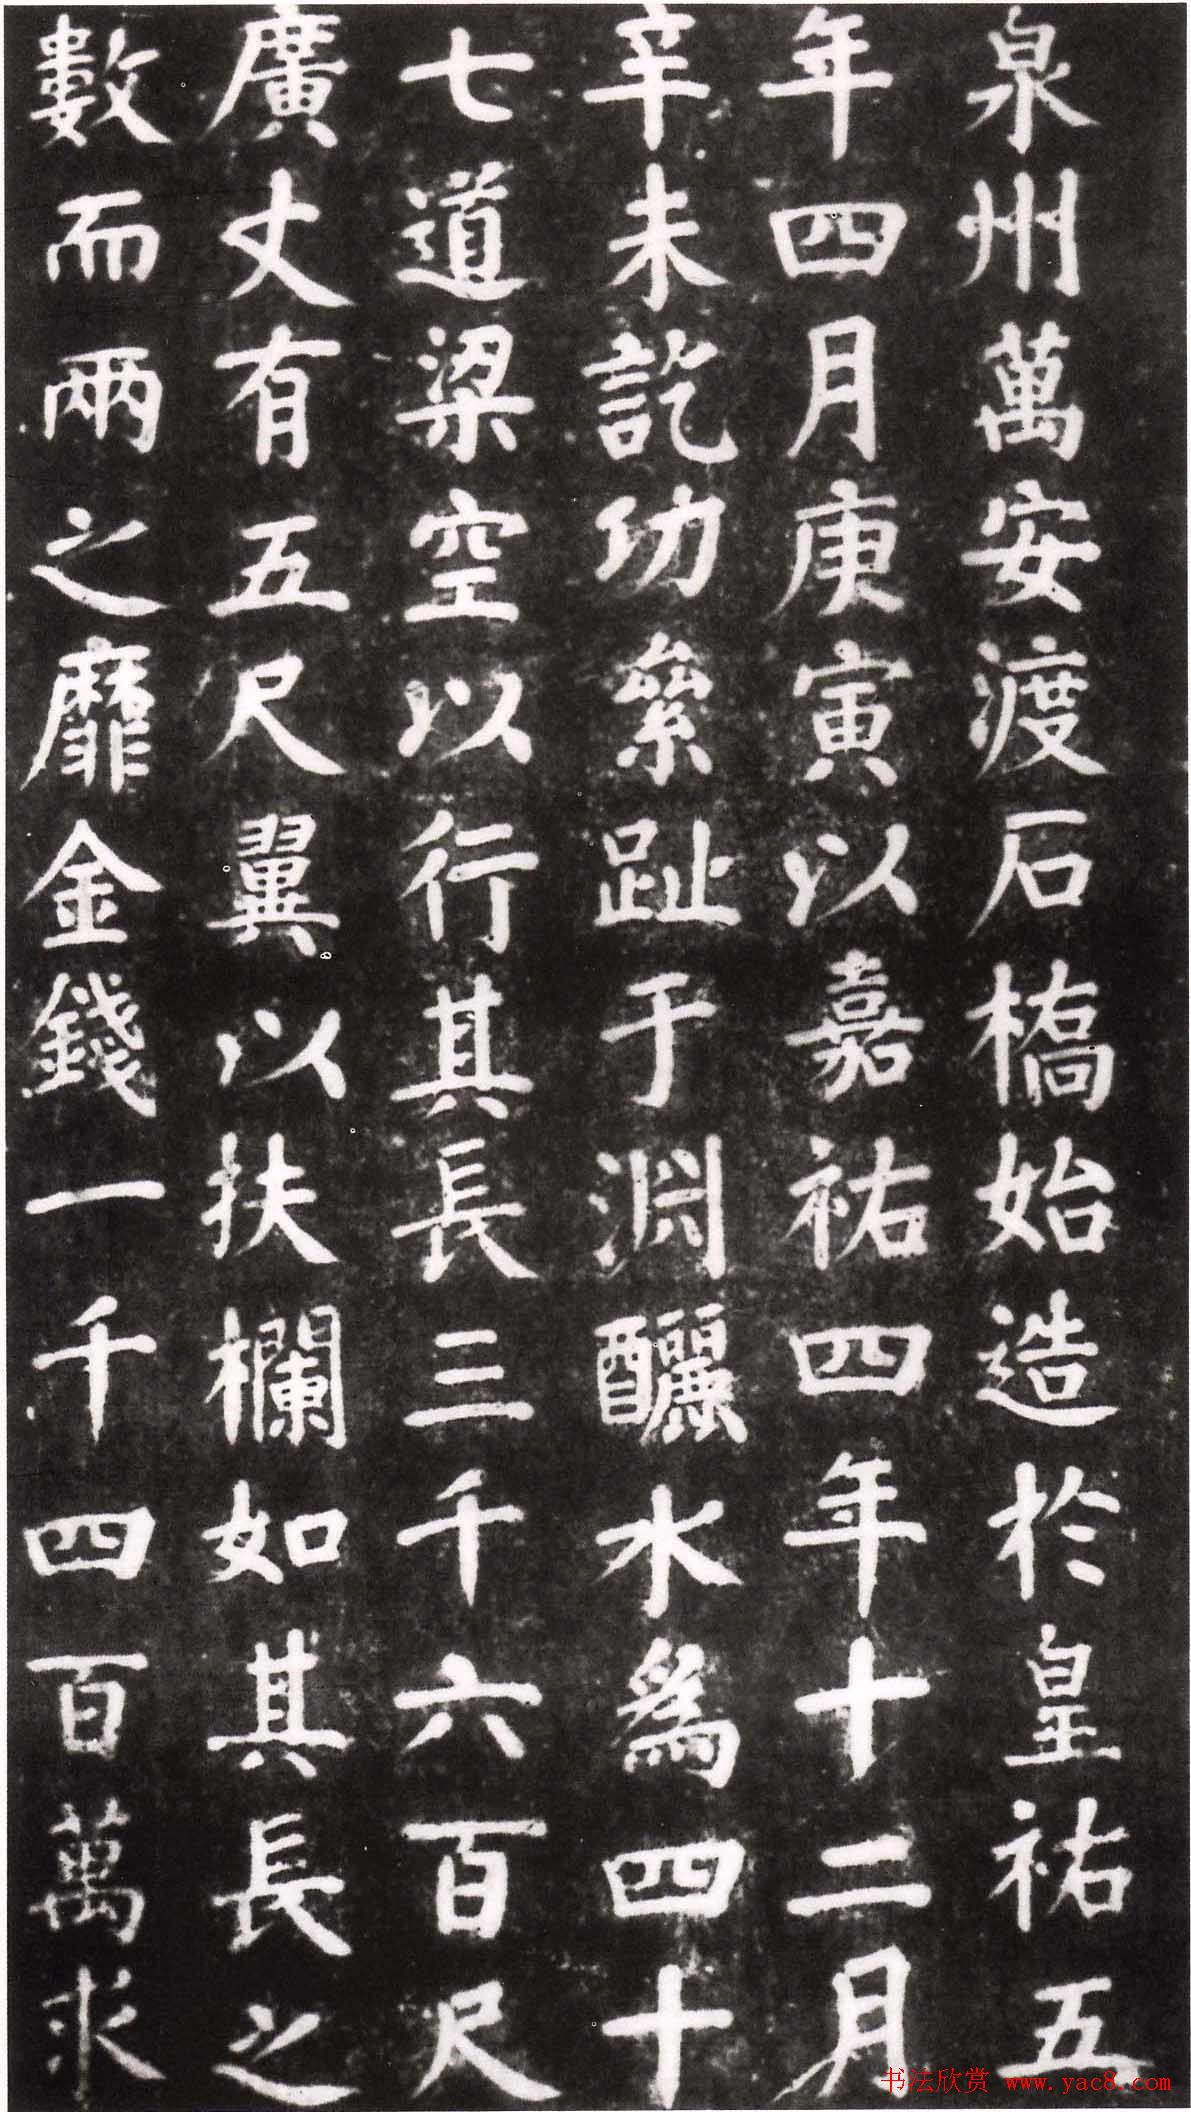 泉州萬安渡石橋始造於皇祐五
年四月庚寅以嘉祐四年十二月
辛未訖功絫趾于淵釃水為四十
七道梁空以行其長三千六百尺
廣丈有五尺翼以扶欄如其長之
數而兩之靡金錢一千四百萬求
书法欣赏 www.yac8.com